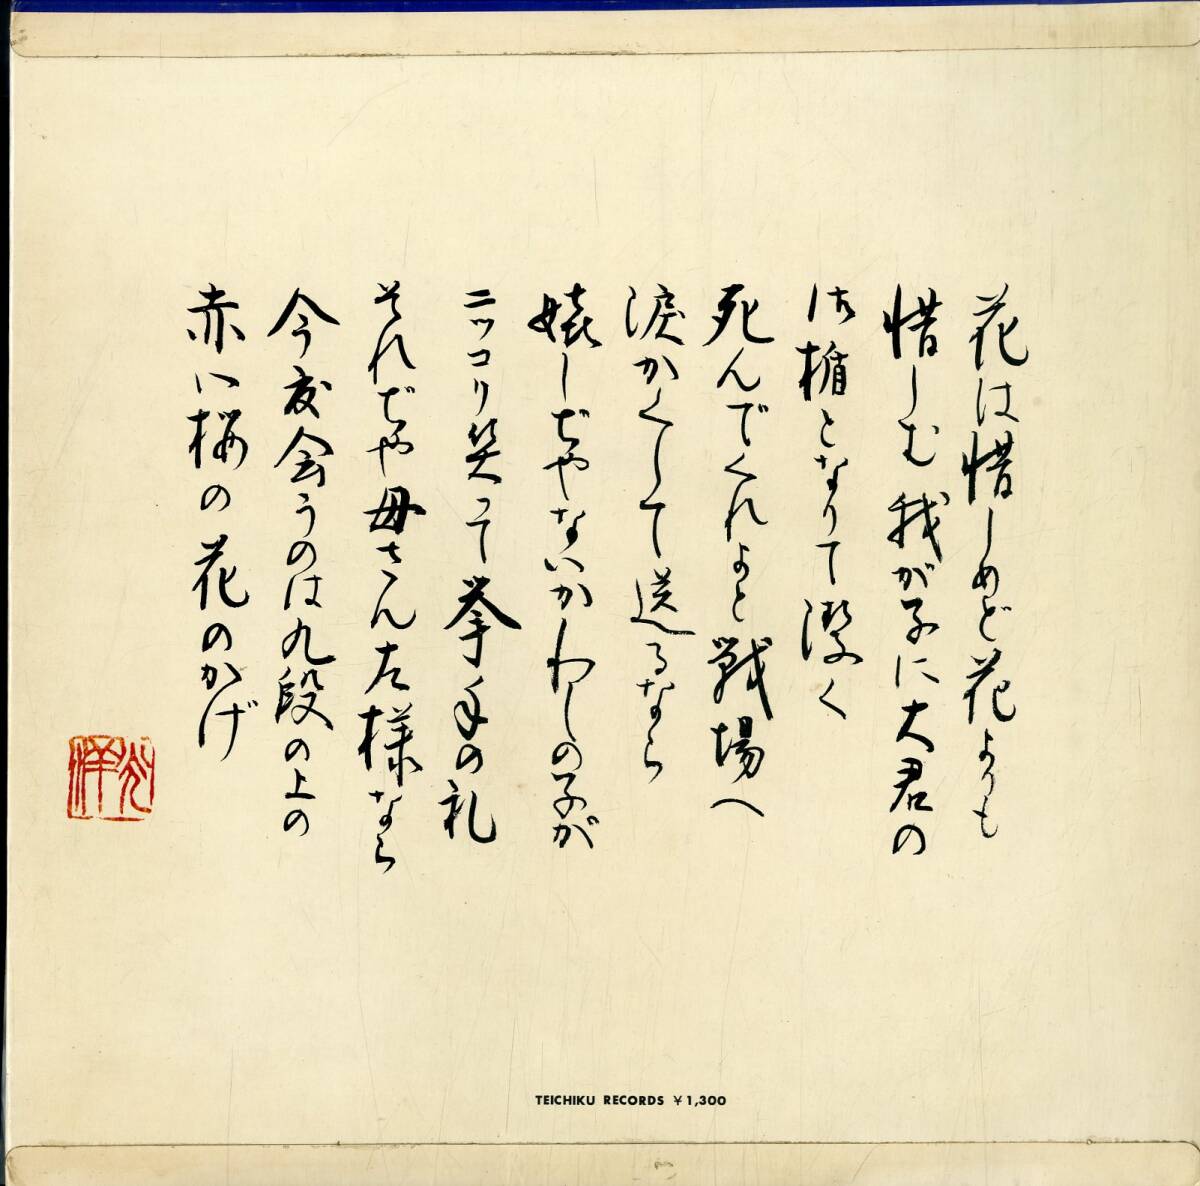 花は惜しめど花よりも
惜しむ我が子に大君の
御楯となりて潔く
死んでくれよと戦場へ
涙かくして送るなら
嬉しぢやないかわしの子が
ニッコリ笑って挙手の礼
それぢや母さん左様なら
今度会うのは九段の上の
赤い桜の花のかげ
TEICHIKU RECORDS ¥1,300